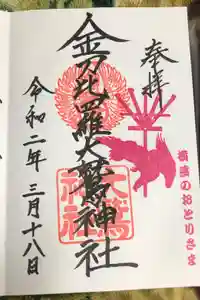 奉拝
横濱のおとりさま
金刀比羅大鷲神社
大鷲
神社
令和二年三月十八日